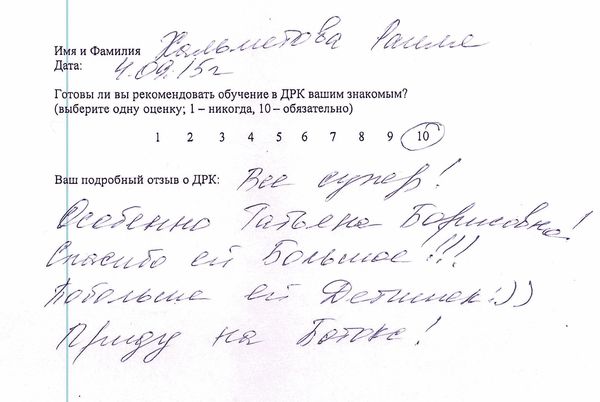 Имя и Фамилия Хальметова Раиля
Дата: 4.09.15г
Готовы ли вы рекомендовать обучение в ДРК вашим знакомым?
(выберите одну оценку; 1 – никогда, 10 – обязательно)
1 2 3 4 5 6 7 8 9 10
Ваш подробный отзыв о ДРК: Все супер!
Особенно Татьяна Борисовна!
Спасибо ей Большое!!!
Побольше ей Детишек:))
Приду на Ботокс!